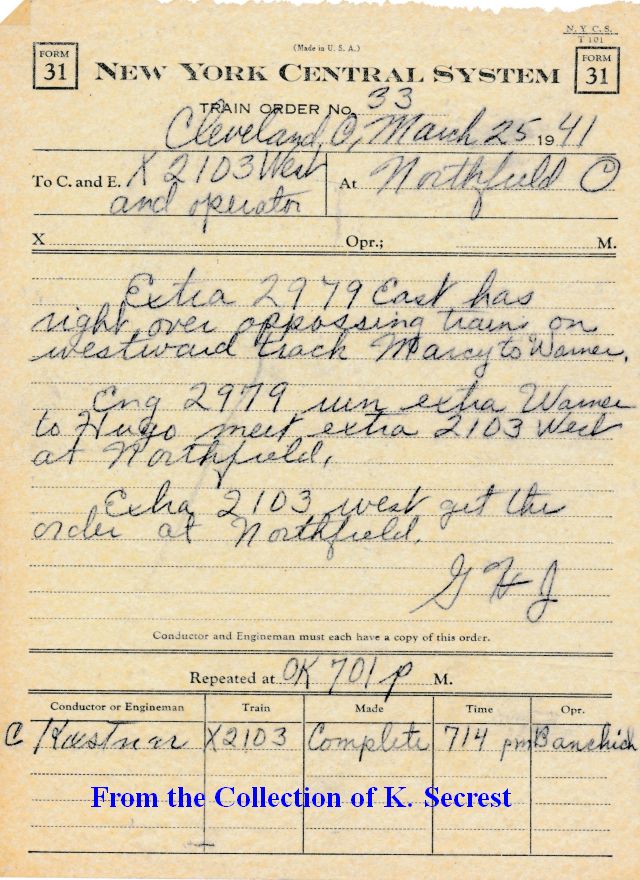 N. Y. C. S.
T 101
(Made in U. S. A.)
FORM 31
NEW YORK CENTRAL SYSTEM
FORM 31
TRAIN ORDER No. 33
Cleveland, O, March 25 1941
To C. and E. X 2103 West
and operator
At Northfield O
X Opr.; M.
Extra 2979 East has
right over opposing trains on
westward track Marcy to Warner.
Eng 2979 run extra Warner
to Hugo meet extra 2103 West
at Northfield.
Extra 2103 west get this
order at Northfield.
G H J
Conductor and Engineman must each have a copy of this order.
Repeated at OK 701 p M.
Conductor or Engineman Train Made Time Opr.
C X2103 Complete 714 pm Banchich
From the Collection of K. Secrest